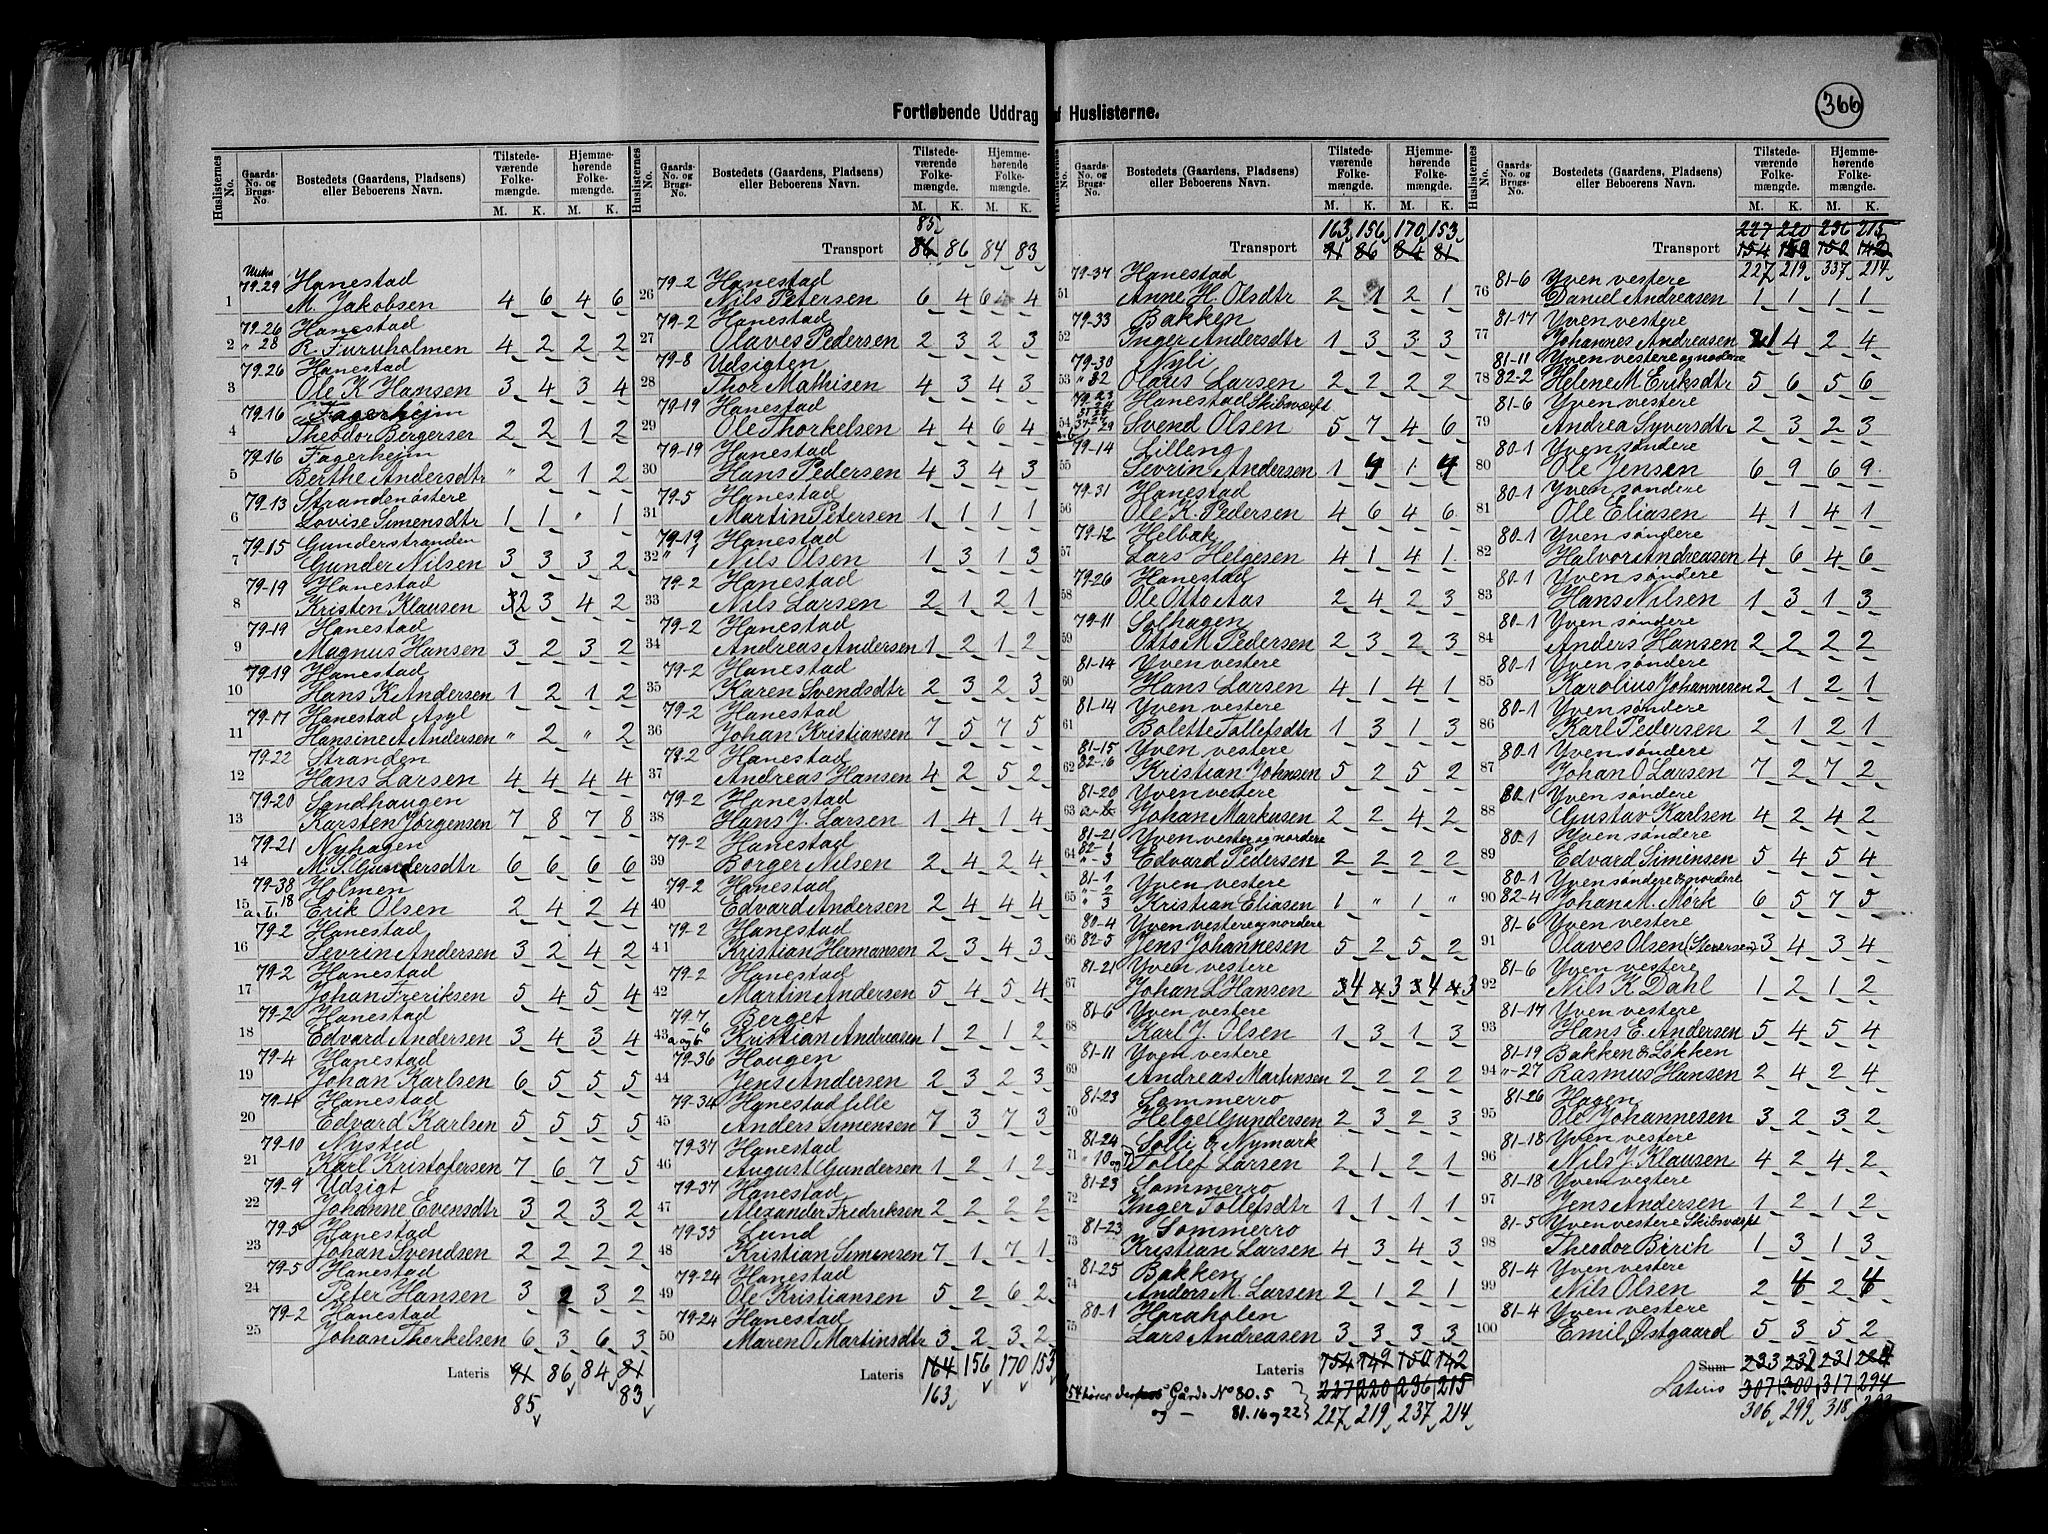 366
Fortløbende Uddrag af Huslisterne.
Huslisternes No. | Gaards-No. og Brugs-No. | Bostedets (Gaardens, Pladsens) eller Beboerens Navn. | Tilstedeværende Folkemængde. M. K. | Hjemmehørende Folkemængde. M. K.
79-29 Hanestad
1 M. Jakobsen 4 6 4 6
79-26 Hanestad
2 " 28 R. Furuholmen 4 2 2 2
79-26 Hanestad
3 Ole K Hansen 3 4 3 4
79-16 Fagerhejm
4 Theodor Bergersen 2 2 1 2
79-16 Fagerhejm
5 Berthe Andersdtr " 2 1 2
79-13 Stranden östere
6 Lovise Simensdtr 1 1 " 1
79-15 Gunderstranden
7 Gunder Nilsen 3 3 3 2
79-19 Hanestad
8 Kristen Klausen 2 3 4 2
79-19 Hanestad
9 Magnus Hansen 3 2 3 2
79-19 Hanestad
10 Hans K Andersen 1 2 1 2
79-17 Hanestad Asyl
11 Hansine A Andersen " 2 " 2
79-22 Stranden
12 Hans Larsen 4 4 4 4
79-20 Sandhaugen
13 Karsten Jørgensen 7 8 7 8
79-21 Nyhagen
14 M. S. Gundersdtr 6 6 6 6
79-38 Holmen
15 -18 a.b. Erik Olsen 2 4 2 4
79-2 Hanestad
16 Sevrin Andersen 3 2 4 2
79-2 Hanestad
17 Johan Freriksen 5 4 5 4
79-2 Hanestad
18 Edvard Andersen 3 4 3 4
79-4 Hanestad
19 Johan Karlsen 6 5 5 5
79-4 Hanestad
20 Edvard Karlsen 5 5 5 5
79-10 Nysted
21 Karl Kristofersen 7 6 7 5
79-9 Udsigt
22 Johanne Evensdtr 3 2 3 2
79-5 Hanestad
23 Johan Svendsen 2 2 2 2
79-5 Hanestad
24 Peter Hansen 3 2 3 2
79-2 Hanestad
25 Johan Thorkelsen 6 3 6 3
Lateris 91 86 84 81
85 83
Huslisternes No. | Gaards-No. og Brugs-No. | Bostedets (Gaardens, Pladsens) eller Beboerens Navn. | Tilstedeværende Folkemængde. M. K. | Hjemmehørende Folkemængde. M. K.
85
Transport 86 86 84 83
79-2 Hanestad
26 Nils Petersen 6 4 6 4
79-2 Hanestad
27 Olaves Pedersen 2 3 2 3
79-8 Udsigten
28 Thor Mathisen 4 3 4 3
79-19 Hanestad
29 Ole Thorkelsen 4 4 6 4
79-19 Hanestad
30 Hans Pedersen 4 3 4 3
79-5 Hanestad
31 Martin Petersen 1 1 1 1
79-19 Hanestad
32 " 1 Nils Olsen 1 3 1 3
79-2 Hanestad
33 Nils Larsen 2 1 2 1
79-2 Hanestad
34 Andreas Andersen 1 2 1 2
79-2 Hanestad
35 Karen Svendsdtr 2 3 2 3
79-2 Hanestad
36 Johan Kristiansen 7 5 7 5
79-2 Hanestad
37 Andreas Hansen 4 2 5 2
79-2 Hanestad
38 Hans J. Larsen 1 4 1 4
79-2 Hanestad
39 Borger Nilsen 2 4 2 4
79-2 Hanestad
40 Edvard Andersen 2 4 4 4
79-2 Hanestad
41 Kristian Hermansen 2 3 4 3
79-2 Hanestad
42 Martin Andersen 5 4 5 4
79-7 Berget
43 -6 a og b Kristian Andreasen 1 2 1 2
79-36 Haugen
44 Jens Andersen 2 3 2 3
79-34 Hanestad lille
45 Anders Simensen 7 3 7 3
79-37 Hanestad
46 August Gundersen 1 2 1 2
79-37 Hanestad
47 Alexander Fredriksen 2 2 2 2
79-35 Lund
48 Kristian Simensen 7 1 7 1
79-24 Hanestad
49 Ole Kristiansen 5 2 6 2
79-24 Hanestad
50 Maren O Martinsdtr 3 2 3 2
Lateris 164 156 170 153
163
No. | Gaards-No. og Brugs-No. | Bostedets (Gaardens, Pladsens) eller Beboerens Navn. | Tilstedeværende Folkemængde. M. K. | Hjemmehørende Folkemængde. M. K.
163 156 170 153
Transport 91 86 84 81
79-37 Hanestad
51 Anne H. Olsdtr 2 1 2 1
79-33 Bakken
52 Inger Andersdtr 1 3 3 3
79-30 Nyli
53 " 32 Olaus Larsen 2 2 2 2
79-23 Hanestad Skibsværft
54 Svend Olsen 5 7 4 6
79-14 Lilleng
55 Sevrin Andersen 1 4 1 4
79-31 Hanestad
56 Ole K. Pedersen 4 6 4 6
79-12 Helbak
57 Lars Helgesen 4 1 4 1
79-26 Hanestad
58 Ole Otto Aas 2 4 2 3
79-11 Solhagen
59 Otto M Pedersen 2 3 2 3
81-14 Yven vestere
60 Hans Larsen 4 1 4 1
81-14 Yven vestere
61 Bolette Tollefsdtr 1 3 1 3
81-15 Yven vestere
62 82-6 Kristian Johnsen 5 2 5 2
81-20 Yven vestere
63 a-b Johan Markusen 2 2 4 2
81-21 Yven vestere og nordere
64 82-1 "-3 Edvard Pedersen 2 2 2 2
81-1 Yven vestere
65 "-2 " 3 Kristian Eliasen 1 " 1 "
80-4 Yven vestere og nordere
66 82-5 Jens Johannesen 5 2 5 2
81-21 Yven vestere
67 Johan L Hansen 4 3 4 3
81-6 Yven vestere
68 Karl J. Olsen 1 3 1 3
81-11 Yven vestere
69 Andreas Martinsen 2 2 2 2
81-23 Sommerro
70 Helge Gundersen 2 3 2 3
81-24 Solli & Nymark
71 " 10 og 7 Tollef Larsen 2 1 2 1
81-23 Sommerro
72 Inger Tollefsdtr 1 1 1 1
81-23 Sommerro
73 Kristian Larsen 4 3 4 3
81-25 Bakken
74 Anders M. Larsen 2 1 2 1
80-1 Haraholen
75 Lars Andreasen 3 3 3 3
Lateris 154 149 150 142
227 220 236 215
54 hører Gårds No 80.5
og — 81.16 og 22 } 227 219 237 214
Huslisternes No. | Gaards-No. og Brugs-No. | Bostedets (Gaardens, Pladsens) eller Beboerens Navn. | Tilstedeværende Folkemængde. M. K. | Hjemmehørende Folkemængde. M. K.
227 220 236 215
Transport 154 150 142
227 219 337 214
81-6 Yven vestere
76 Daniel Andreasen 1 1 1 1
81-17 Yven vestere
77 Johannes Andreasen 1 4 2 4
81-11 Yven vestere og nordere
78 82-2 Helene M Eriksdtr 5 6 5 6
81-6 Yven vestere
79 Andrea Syversdtr 2 3 2 3
80-1 Yven søndere
80 Ole Jensen 6 9 6 9
80-1 Yven søndere
81 Ole Eliasen 4 1 4 1
80-1 Yven søndere
82 Halvor Andreasen 4 6 4 6
80-1 Yven søndere
83 Hans Nilsen 1 3 1 3
80-1 Yven søndere
84 Anders Hansen 2 2 2 2
80-1 Yven søndere
85 Karolius Johannesen 2 1 2 1
80-1 Yven søndere
86 Karl Pedersen 2 1 2 1
80-1 Yven søndere
87 Johan O Larsen 7 2 7 2
80-1 Yven søndere
88 Gustav Karlsen 4 2 4 2
80-1 Yven søndere
89 Edvard Simensen 5 4 5 4
80-1 Yven søndere & nordere
90 82-4 Johan M. Mørk 6 5 7 5
81-6 Yven vestere
91 Olaves Olsen 3 4 3 4
81-6 Yven vestere
92 Nils K Dahl 1 2 1 2
81-17 Yven vestere
93 Hans E. Andersen 5 4 5 4
81-19 Bakken & Løkken
94 "-27 Rasmus Hansen 2 4 2 4
81-26 Hagen
95 Ole Johannesen 3 2 3 2
81-18 Yven vestere
96 Nils J. Klausen 4 2 4 2
81-18 Yven vestere
97 Jens Andersen 1 2 1 2
81-5 Yven vestere Skibsværft
98 Theodor Birch 1 3 1 3
81-4 Yven vestere
99 Nils Olsen 2 4 2 4
81-4 Yven vestere
100 Emil Østgaard 5 3 5 2
Sum 233 231
Lateris 307 300 317 294
306 299 318